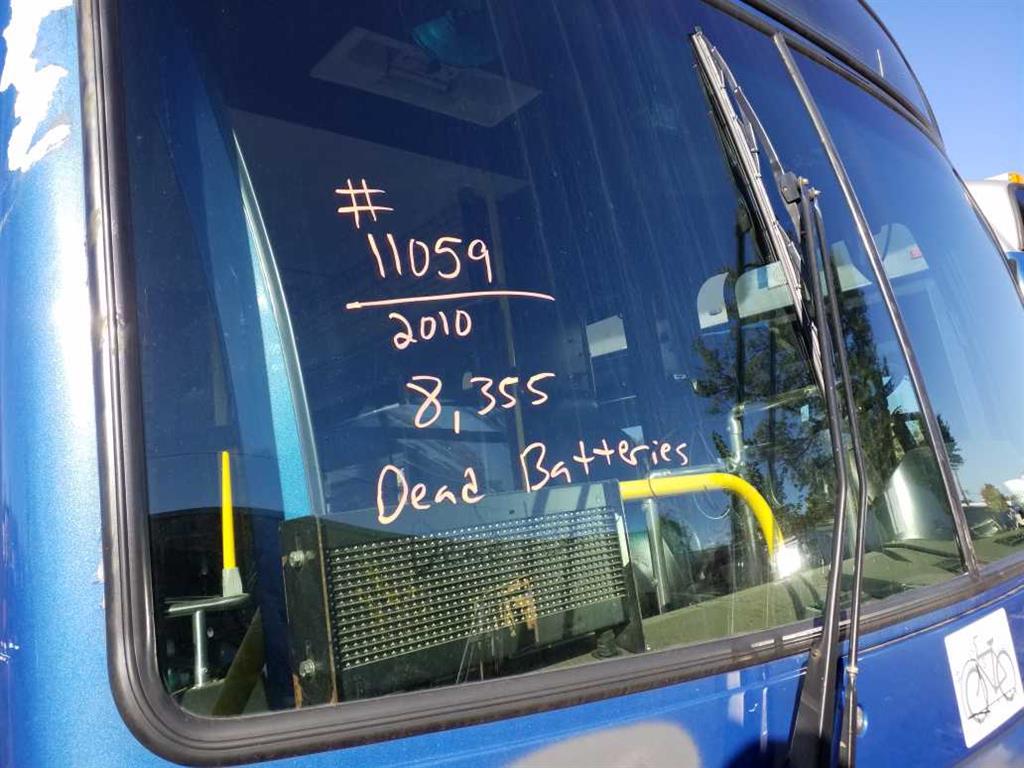 #
11059
2010
8,355
Dead Batteries